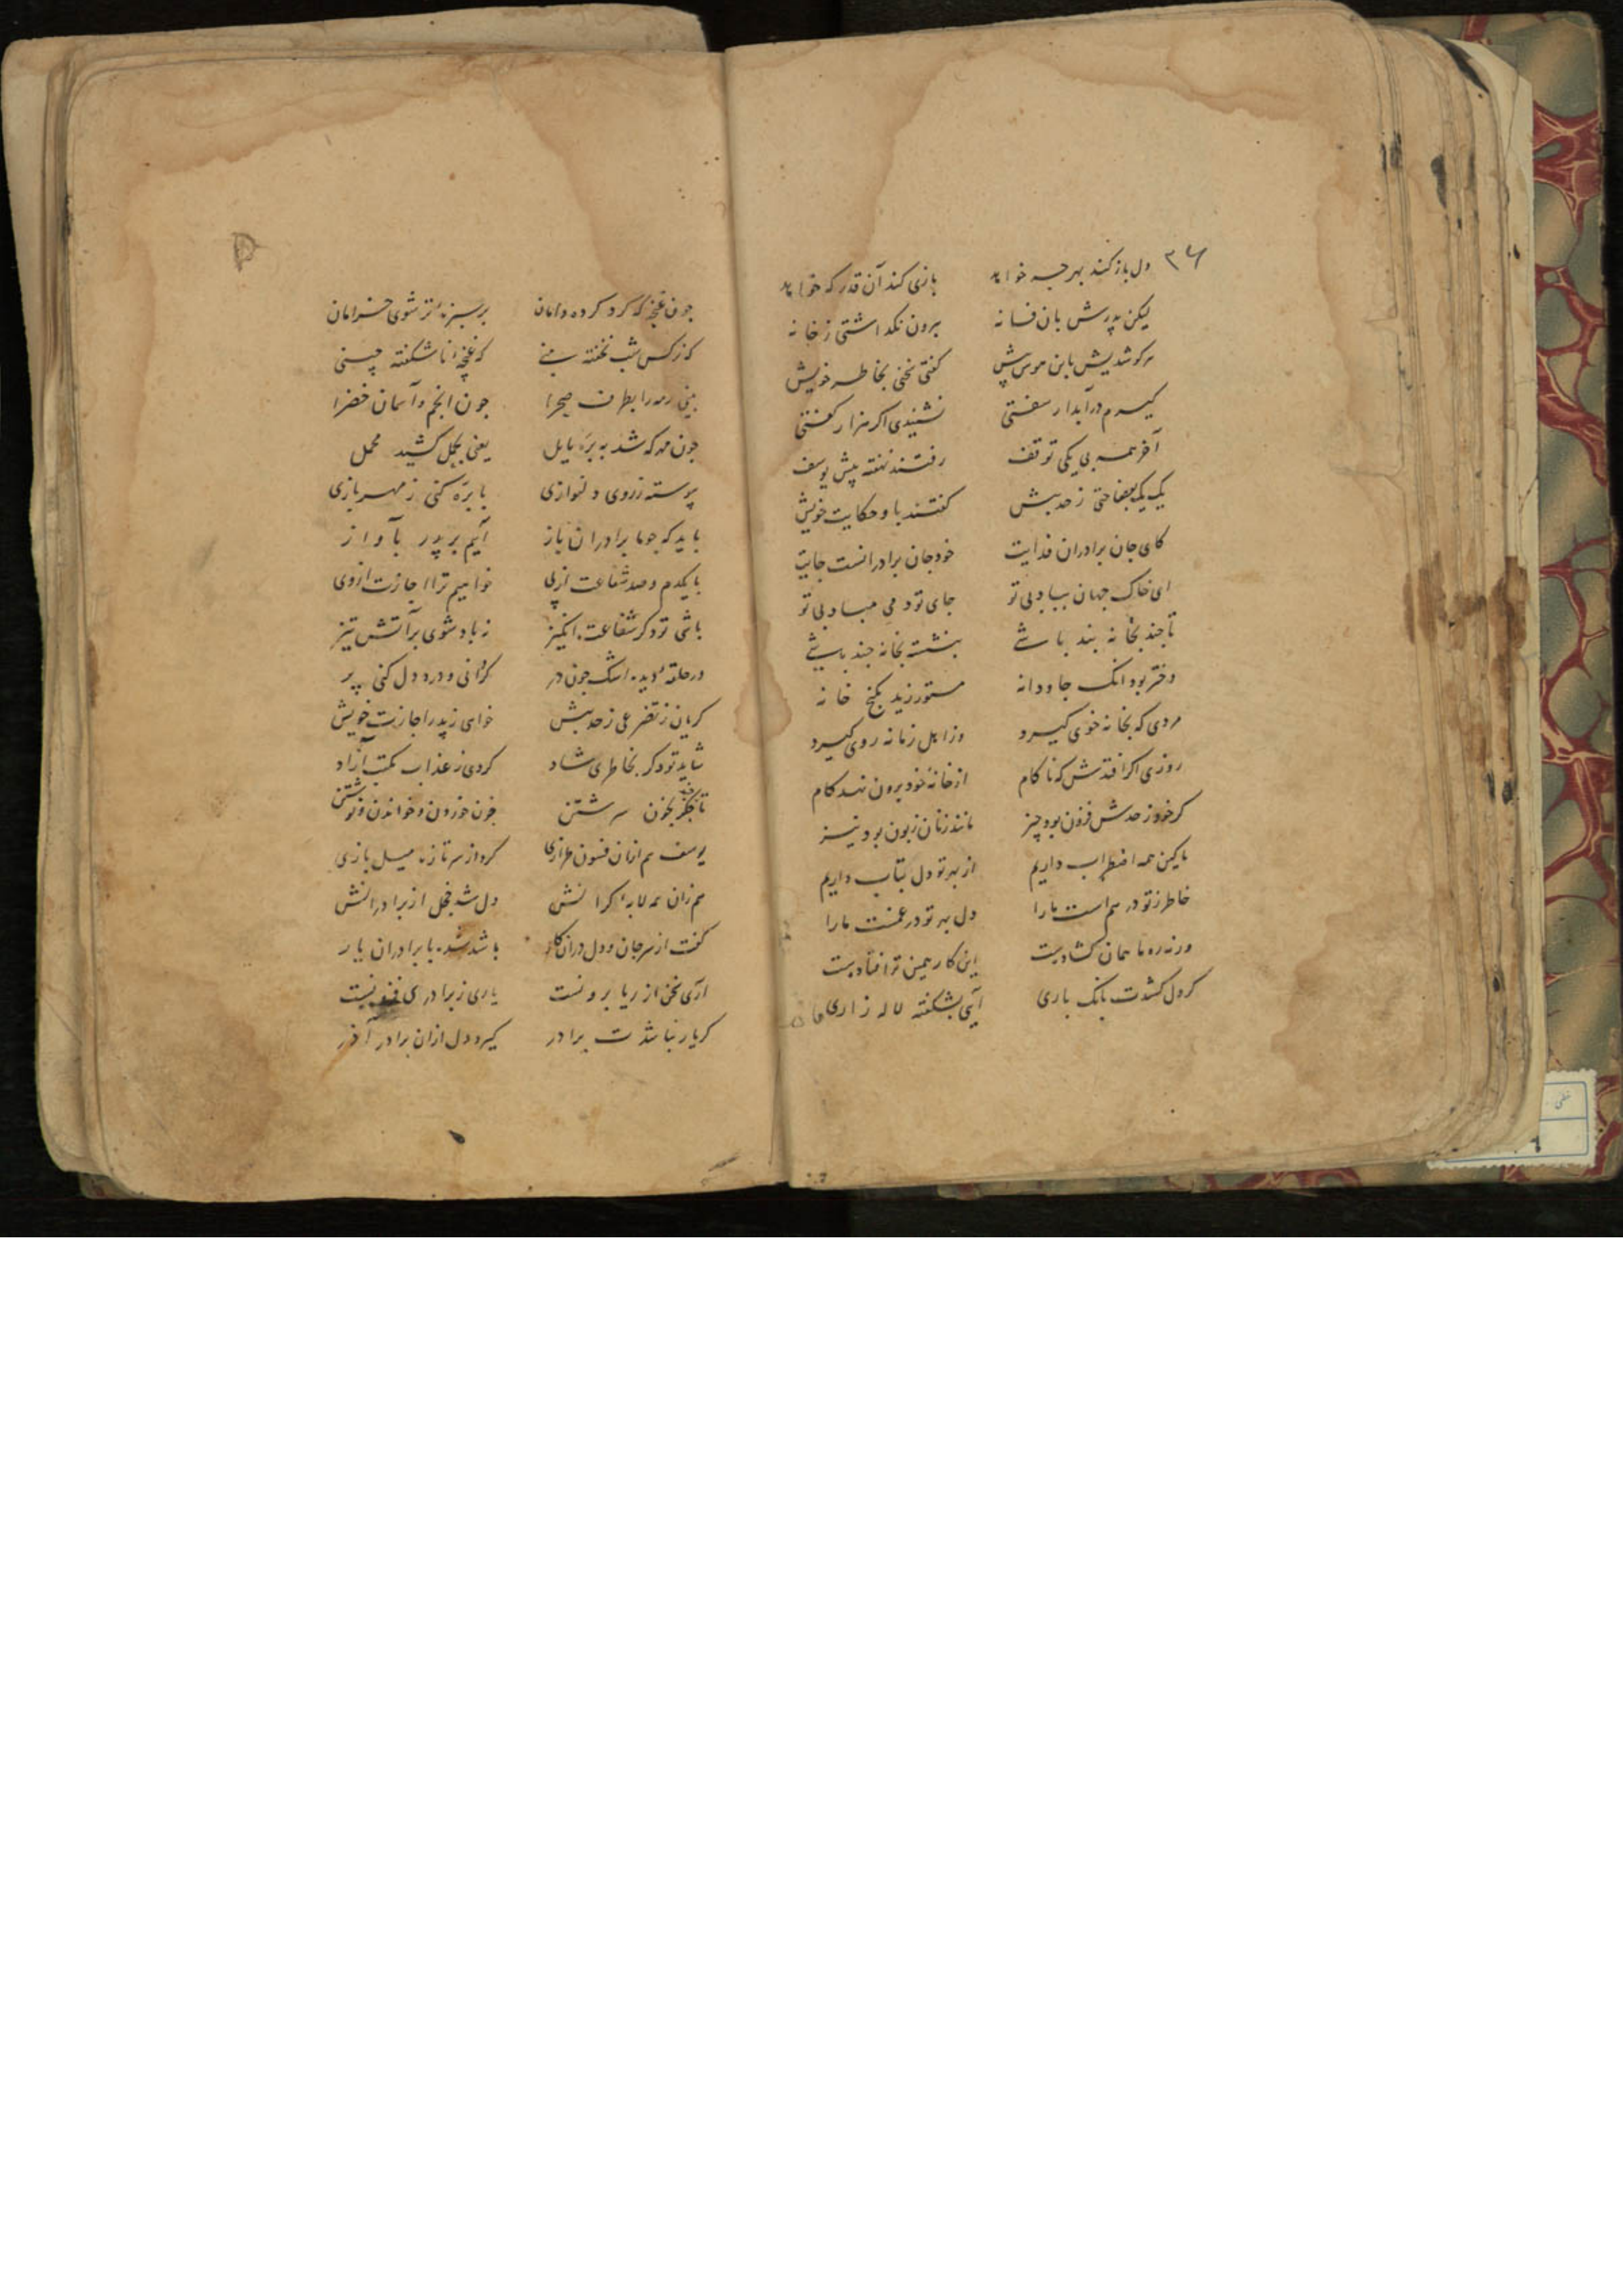 دل باز کند بهر چه خواهد بازی کند آن قدر که خواهد
لیکن پدرش بان فسانه برون نکداشتی ز خانه
کفتی سخنی بخاطر خویش
کیرم در آبدار سفتی نشنیدی اکر هزار کفتی
آخر همه بی یکی توقف رفتند نهفته پیش یوسف
یک یک ز حد بیش کفتند با و حکایت خویش
کای جان برادران فدایت خود جان برادرانست جایت
ای خاک جهان بی تو جای تو دمی مباد بی تو
تا جند بخانه بند باشے بنشسته بخانه جند باشے
دختر بود انک جاودانه مستور زید بکنج خانه
مردی که بخانه خوی کیرد وز اهل زمانه روی کیرد
روزی اکر افتدش که ناکام از خانهٔ خود برون نهد کام
کر خود ز حدش فزون بود چیز مانند زنان زبون بود نیز
ما کین همه اضطراب داریم از بهر تو دل بتاب داریم
خاطر ز تو درهم است ما را دل بهر تو در غمست ما را
ورنه ره ما همان کشادست این کار همین ترا فتادست
کر دل کشدت بانک باری آیی بشکفته لاله زاری
جون غنچه که کرد کرده دامان بر سبزهٔ تر شوی خرامان
که نرکس شب نخفته بینے که غنچهٔ ناشکفته چینی
بینی رمه را بطرف صحرا جون انجم و آسمان خضرا
جون مه که شد به بره مایل یعنی بحمل کشید محمل
پیوسته ز روی دلنوازی با بره کنی ز مهر بازی
باید که جو ما برادران باز آییم بر پدر بآواز
با یکدم و صد شفاعت از پی خواهیم ترا اجازت از وی
باشی تو دکر شفاعت انکیز ز باد شوی بر آتش تیز
در حلقهٔ دیده اشک جون در کردانی و درد دل کنی پر
کریان ز تضرعی ز حد بیش خواهی ز پدر اجازت خویش
شاید تو دکر بخاطری شاد کردی ز عذاب مکتب آزاد
تا جند جکر بخون سرشتن خون خوردن و خواندن و نوشتن
یوسف هم ازان فسون طرازی کرد از سر تازه میل بازی
هم زان همه لابهٔ کرانش دل شد خجل از برادرانش
کفت از سر جان و دل دران کار باشد شد با برادران یار
آری سخن از ریا برونست یاری ز برادری فزونست
کر یار نباشدت برادر کیرد دل ازان برادر آذر